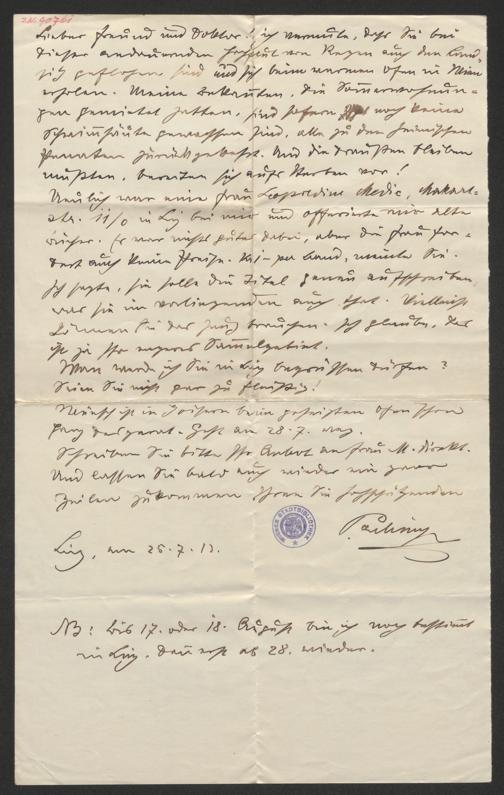 I.N. 90761
Lieber Freund und Doktor! ich vermute, daß Sie bei
dieser andauernden Hochflut von Regen auch den Land-
sitz geflohen sind und sich beim warmen Ofen in Wien
erholen. Meine Bekannten, die Sommerwohnun-
gen gemietet hatten, sind, sofern noch keine
Schwimmhäute gewachsen sind, alle zu den heimischen
Penaten zurückgekehrt. Und die draußen bleiben
mußten, bereiten sich aufs Sterben vor!
Neulich war eine Frau Leopoldine Medic, Makart-
str. 11/0 in Linz bei mir und offerierte mir alte
Bücher. Es war nichts gutes dabei, aber die Frau for-
dert auch keine Preise. per Band, meinte sie.
Ich sagte, sie solle die Titel genau aufschreiben,
was sie im vorliegenden auch that. Vielleicht
können Sie das Zeug brauchen. Ich glaube, das
ist ja Ihr engeres Sammelgebiet.
Wann werde ich Sie in Linz begrüßen dürfen?
Seien Sie nicht gar zu fleißig!
ist in Goisern beim geheizten Ofen
Geht am 28.7. weg.
Schreiben Sie bitte Ihr Anbot an Frau M. direkt.
Und lassen Sie bald auch wieder ein paar
Zeilen zukommen Ihrem Sie hochschätzenden
Pachinger
WIENER STADTBIBLIOTHEK
Linz, am 26.7.13.
NB: bis 17. oder 18. August bin ich noch bestimmt
in Linz. Dann erst ab 28. wieder.